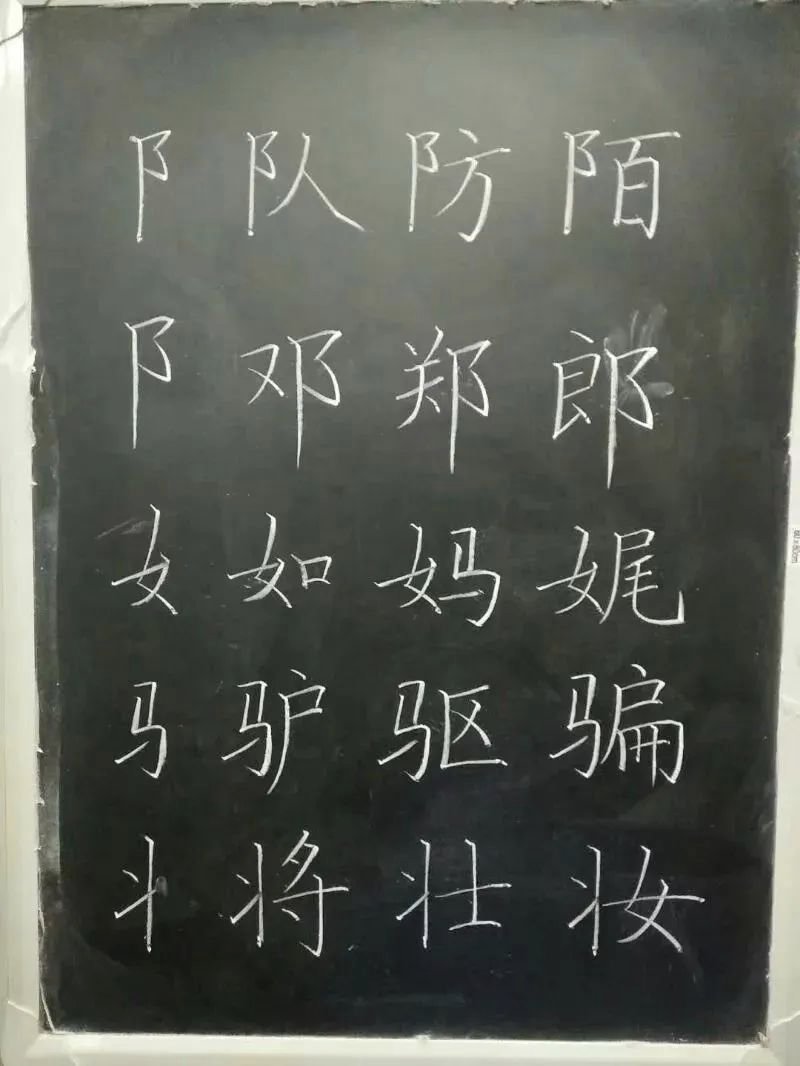 阝 队 防 陌
阝 邓 郑 郎
女 如 妈 娓
马 驴 驱 骗
丬 将 壮 妆
60x80cm